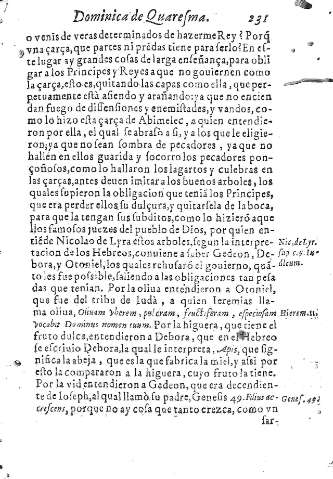 Dominica de Quaresma. 231
o venis de veras determinados de hazerme Rey? Porq̃
vna çarça, que partes ni prẽdas tiene para serlo? En es-
te lugar ay grandes cosas de larga enseñança, para obli
gar a los Principes y Reyes a que no gouiernen como
la çarça, esto es, quitando las capas como ella, que per-
petuamente està asiendo y arañando: ya que no encien
dan fuego de dissensiones y enemistades, y vandos, co-
mo lo hizo esta çarça de Abimelec, a quien entendie-
ron por ella, el qual se abrasò a si, y a los que le eligie-
ron; ya que no sean sombra de pecadores, ya que no
hallen en ellos guarida y socorro los pecadores pon-
çoñosos, como lo hallaron los lagartos y culebras en
las çarças, antes deuen imitar a los buenos arboles, los
quales supieron la obligacion que teniã los Principes,
que era perder ellos su dulçura, y quitarsela de la boca,
para que la tengan sus subditos, como lo hizierõ aque
llos famosos juezes del pueblo de Dios, por quien en-
tiẽde Nicolao de Lyra estos arboles, segun la interpre-
tacion de los Hebreos, conuiene a saber Gedeon, De-
bora, y Otoniel, los quales rehusarõ el gouierno, quã-
to les fue possible, saliendo a las obligaciones tan pesa
das que tenian. Por la oliua entendieron a Otoniel,
que fue del tribu de Iudà, a quien Ieremias llama
ma oliua, Oliuam vberem, pulcram, fructiferam, speciosam
vocauit Dominus nomen tuum. Por la higuera, que tiene el
fruto dulce, entendieron a Debora, que en el Hebreo
se escriuio Debora, la qual se interpreta, Apis, que sig-
nifica la abeja, que es la que fabrica la miel, y assi por
esto la compararon a la higuera, cuyo fruto la tiene.
Por la vid entendieron a Gedeon, que era decendien-
te de Ioseph, al qual llamò su padre, Genesis 49. Filius ac-
crescens, porque no ay cosa que tanto crezca, como vn
sar-
Nic. de Lyr.
Hierem. 11
Genes. 49.